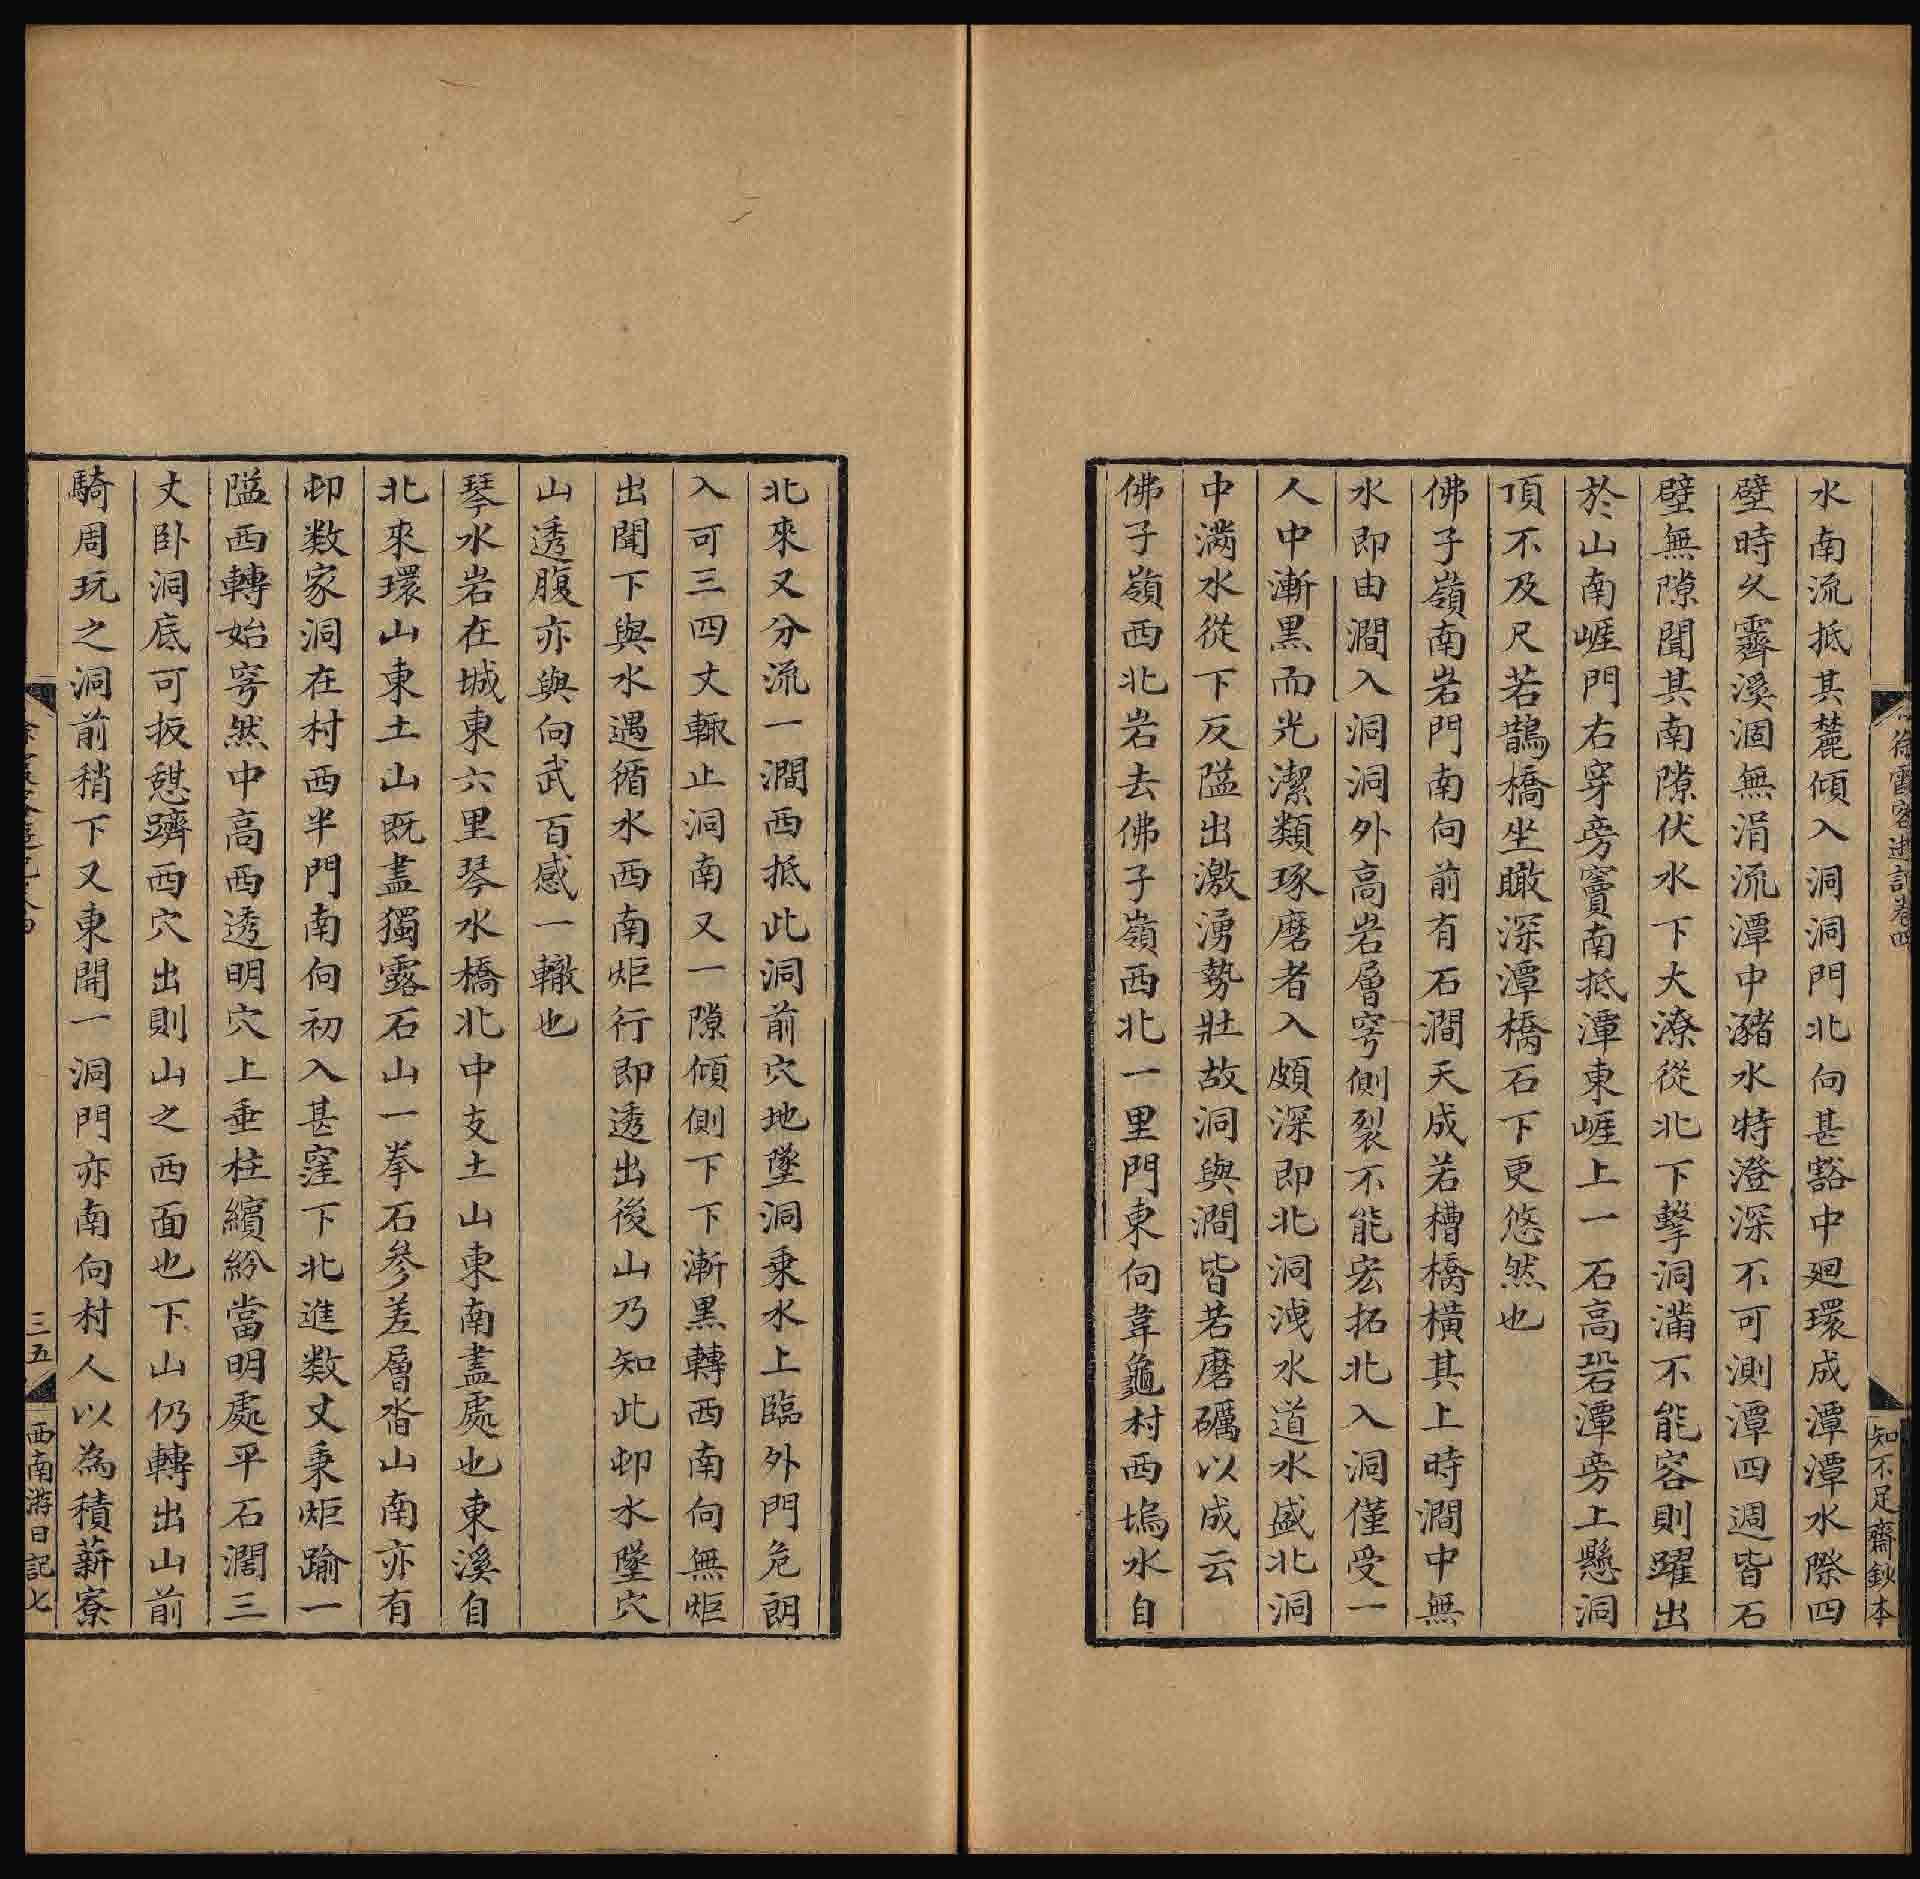 徐霞客遊記卷四
知不足齋鈔本
水南流抵其麓傾入洞洞門北向甚豁中廻環成潭潭水際四
壁時久霽溪涸無涓流潭中瀦水特澄深不可測潭四週皆石
壁無隙聞其南隙伏水下大潦從北下擊洞滿不能容則躍出
於山南崕門右穿旁竇南抵潭東崕上一石高碞潭旁上懸洞
頂不及尺若鵲橋坐瞰深潭橋石下更悠然也
佛子嶺南岩門南向前有石澗天成若槽橋橫其上時澗中無
水即由澗入洞洞外高岩層穹側裂不能宏拓北入洞僅受一
人中漸黑而光潔類琢磨者入頗深即北洞洩水道水盛北洞
中滿水從下反隘出激湧勢壯故洞與澗皆若磨礪以成云
佛子嶺西北岩去佛子嶺西北一里門東向韋龜村西塢水自
北來又分流一澗西抵此洞前穴地墜洞乗水上臨外門危朗
入可三四丈輙止洞南又一隙傾側下下漸黒轉西南向無炬
出聞下與水遇循水西南炬行即透出後山乃知此卹水墜穴
山透腹亦與向武百感一轍也
琴水岩在城東六里琴水橋北中支土山東南盡處也東溪自
北來環山東土山既盡獨露石山一拳石參差層沓山南亦有
卹数家洞在村西半門南向初入甚窪下北進数丈秉炬踰一
隘西轉始穹然中高西透明穴上垂柱繽紛當明處平石濶三
丈卧洞底可扳憇躋西穴出則山之西面也下山仍轉出山前
騎周玩之洞前稍下又東開一洞門亦南向村人以為積薪寮
三五
西南游日記七